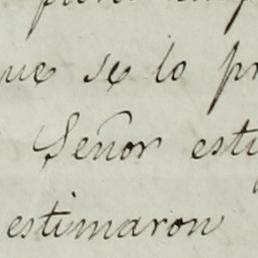 que se lo pr
Señor esti
estimaron